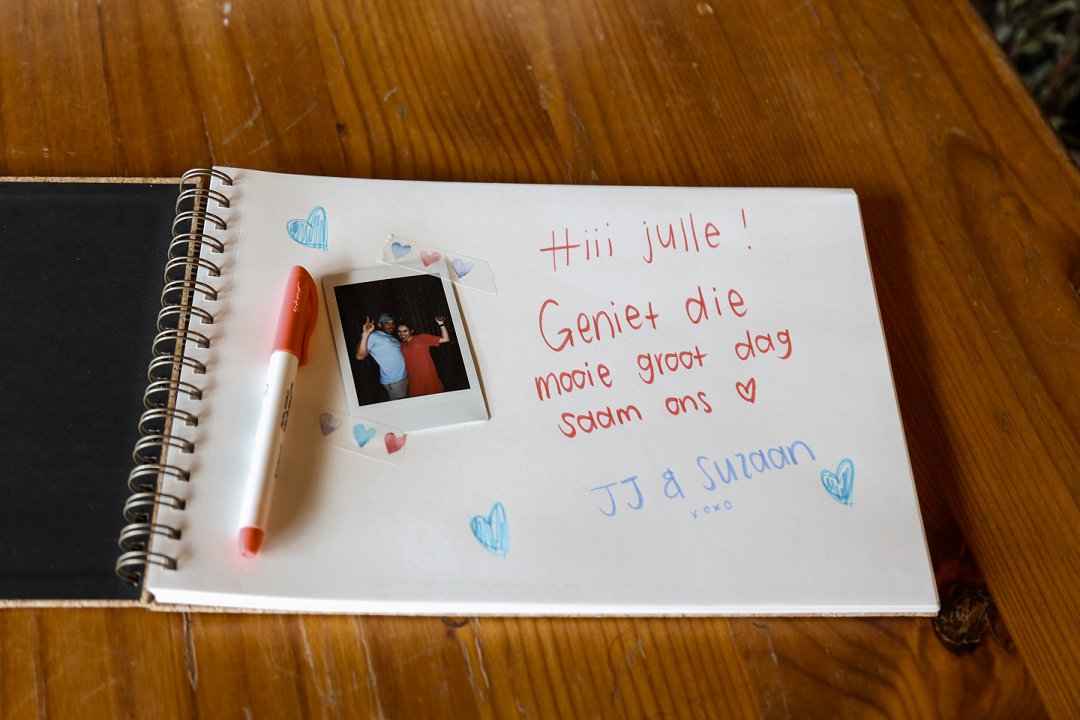 Hiii julle!
Geniet die
mooie groot dag
saam ons ♡
JJ & Suzaan
xoxo